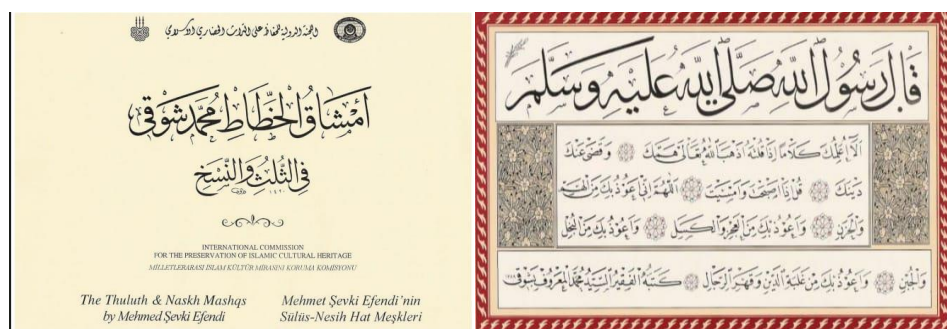 اللجنة الدولية للحفاظ على التراث الحضاري الإسلامي
أمشاق الخطاط محمد شوقي
في الثلث والنسخ
١٤٢٠
INTERNATIONAL COMMISSION
FOR THE PRESERVATION OF ISLAMIC CULTURAL HERITAGE
MILLETLERARASI İSLAM KÜLTÜR MİRASINI KORUMA KOMİSYONU
The Thuluth & Naskh Mashqs
by Mehmed Şevki Efendi
Mehmet Şevki Efendi'nin
Sülüs-Nesih Hat Meşkleri
قَالَ رَسُولُ اللهِ صَلَّى اللهُ عَلَيْهِ وَسَلَّمَ
أَلَا أُعَلِّمُكَ كَلَامًا إِذَا قُلْتَهُ أَذْهَبَ اللهُ تَعَالَى هَمَّكَ وَقَضَى عَنْكَ
دَيْنَكَ قُلْ إِذَا أَصْبَحْتَ وَأَمْسَيْتَ اللَّهُمَّ إِنِّي أَعُوذُ بِكَ مِنَ الْهَمِّ
وَالْحَزَنِ وَأَعُوذُ بِكَ مِنَ الْعَجْزِ وَالْكَسَلِ وَأَعُوذُ بِكَ مِنَ الْبُخْلِ
وَالْجُبْنِ وَأَعُوذُ بِكَ مِنْ غَلَبَةِ الدَّيْنِ وَقَهْرِ الرِّجَالِ كتبه الفقير السيد محمد المعروف بشوقي